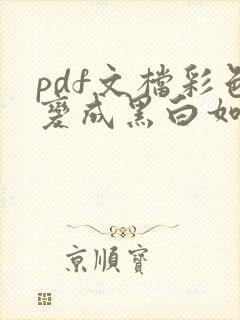 pdf文檔彩色
變成黑白如
京順寶